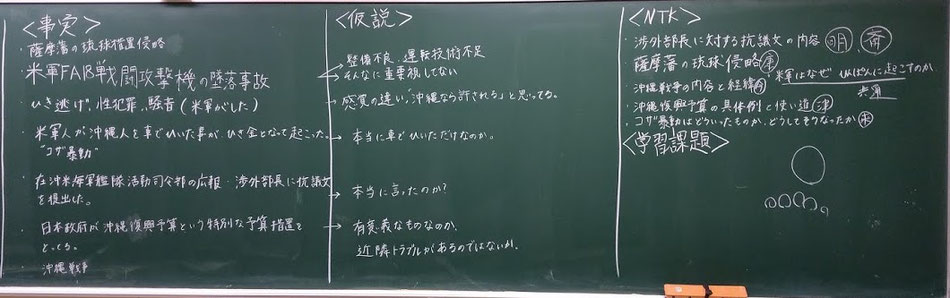 <事実>
・薩摩藩の琉球措置侵略
米軍FA18戦闘攻撃機の墜落事故
ひき逃げ。性犯罪、騒音(米軍がした)
・米軍人が沖縄人を車でひいた事が、ひき金となって起こった。
"コザ暴動"
・在沖米海軍艦隊活動司令部の広報・渉外部長に抗議文
を提出した。
・日本政府が沖縄復興予算という特別な予算措置を
とってる。
沖縄戦争
<仮説>
整備不良、運転技術不足
そんなに重要視してない
感覚の違い、"沖縄なら許される"と思ってる。
本当に車でひいただけなのか。
本当に言ったのか?
有意義なものなのか、
近隣トラブルがあるのではないか。
<NTK>
・渉外部長に対する抗議文の内容 明 斎
薩摩藩の琉球侵略
・沖縄戦争の内容と経緯 米軍はなぜ いっぱんに起こすのか
共通
・沖縄復興予算の具体例と使い道 津
・コザ暴動はどういったものか、どうしてそうなったか 米
<学習課題>